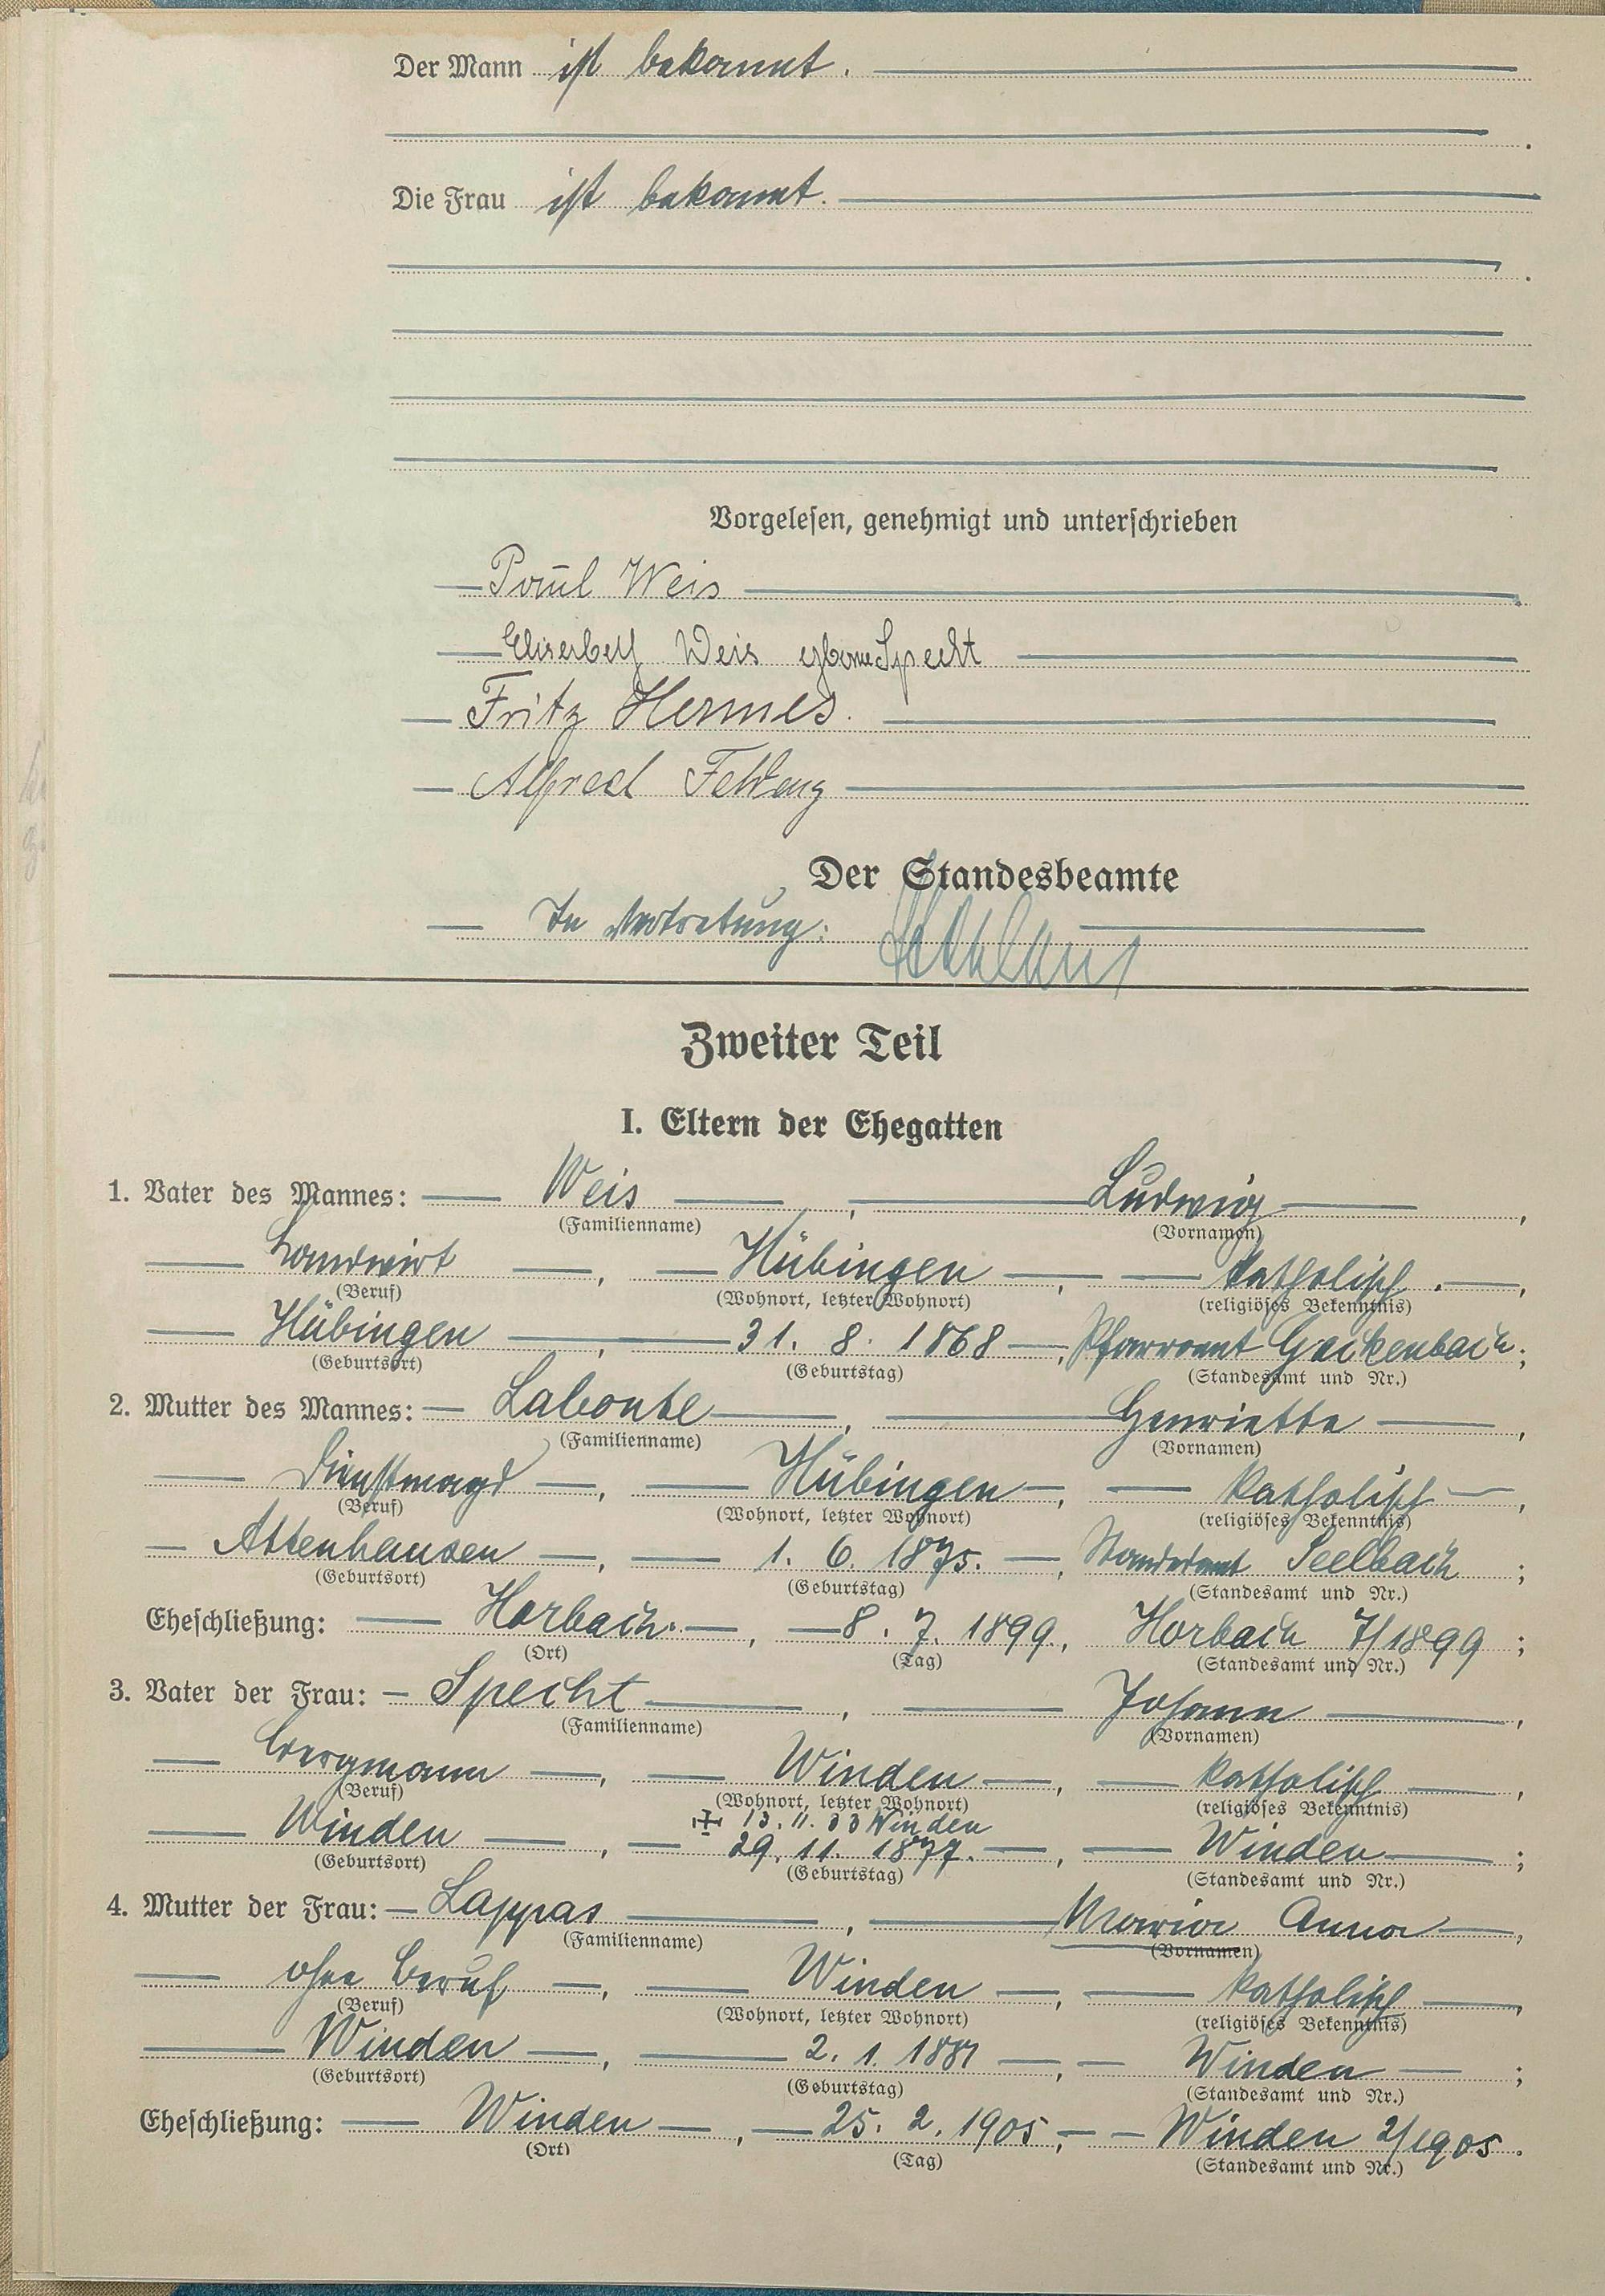 Der Mann ist bekannt.
Die Frau ist bekannt.
Vorgelesen, genehmigt und unterschrieben
Paul Weis
Elisabeth Weis geborne Specht
Fritz Hermes.
Alfred
Der Standesbeamte
In Vertretung:
Zweiter Teil
I. Eltern der Ehegatten
1. Vater des Mannes: Weis, Ludwig,
(Familienname) (Vornamen)
Landwirt, Hübingen, katholisch.,
(Beruf) (Wohnort, letzter Wohnort) (religiöses Bekenntnis)
Hübingen, 31. 8. 1868, Pfarramt Gackenbach;
(Geburtsort) (Geburtstag) (Standesamt und Nr.)
2. Mutter des Mannes: Labonte, Henriette,
(Familienname) (Vornamen)
Dienstmagd, Hübingen, katholisch,
(Beruf) (Wohnort, letzter Wohnort) (religiöses Bekenntnis)
Attenhausen, 1. 6. 1875., Standesamt Seelbach;
(Geburtsort) (Geburtstag) (Standesamt und Nr.)
Eheschließung: Horbach., 8. 7. 1899., Horbach 7/1899;
(Ort) (Tag) (Standesamt und Nr.)
3. Vater der Frau: Specht, Johann,
(Familienname) (Vornamen)
Bergmann, Winden, katholisch,
(Beruf) (Wohnort, letzter Wohnort) (religiöses Bekenntnis)
13. 11. 33 Winden
Winden, 29. 11. 1877., Winden;
(Geburtsort) (Geburtstag) (Standesamt und Nr.)
4. Mutter der Frau: Lappas, Maria Anna,
(Familienname) (Vornamen)
ohne Beruf, Winden, katholisch,
(Beruf) (Wohnort, letzter Wohnort) (religiöses Bekenntnis)
Winden, 2. 1. 1881, Winden;
(Geburtsort) (Geburtstag) (Standesamt und Nr.)
Eheschließung: Winden, 25. 2. 1905, Winden 2/1905.
(Ort) (Tag) (Standesamt und Nr.)